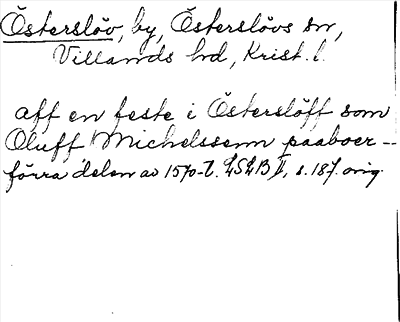 Österslöv, by, Österslövs sn,
Villands hd, Krist. l.
aff en feste i Österslöff som
Oluff Michelssenn paaboer --
förra delen av 1570-t. LSLB II, s. 187. orig.